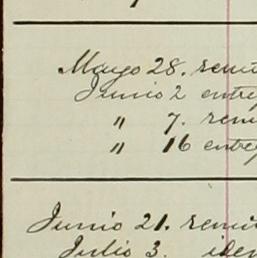 Mayo 28. remi
Junio 2 entre
" 7. remi
" 16 entre
Junio 21. remi
Julio 3. iden